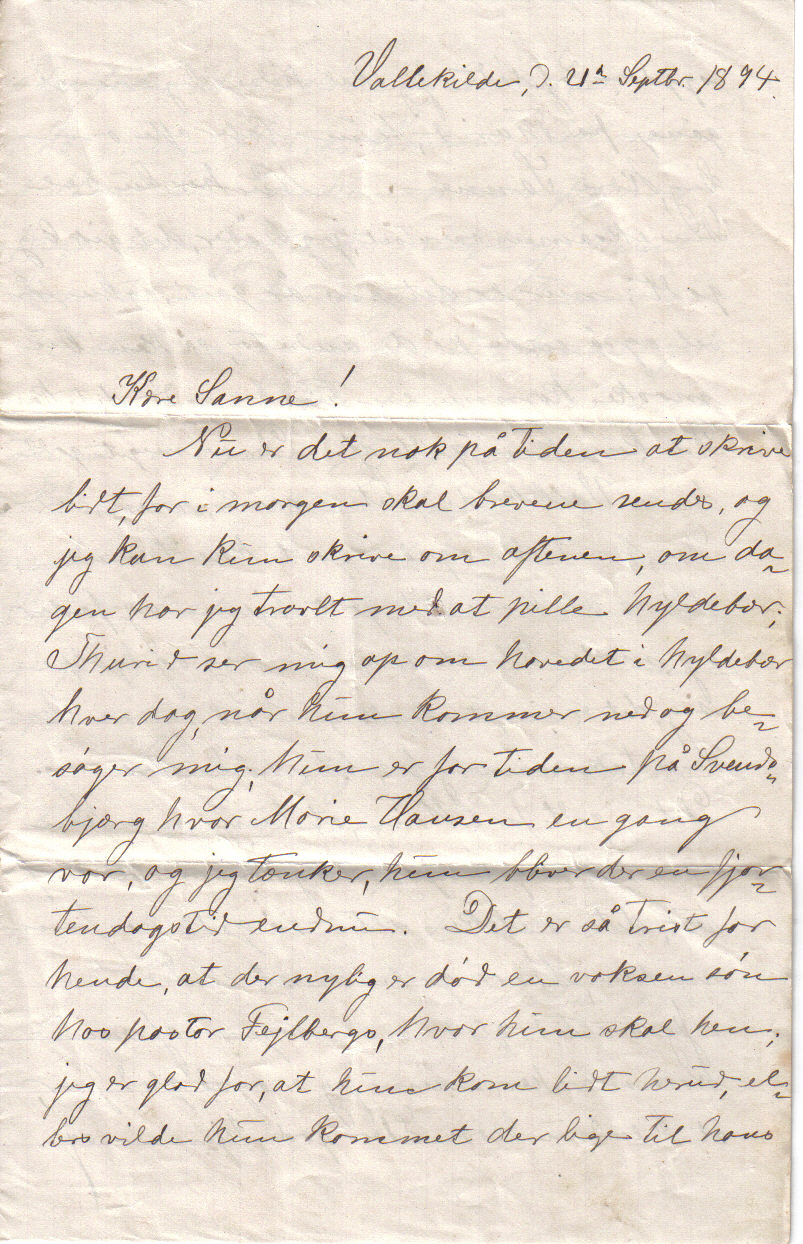 Vallekilde, d. 21de Septbr. 1894.
Kære Sanne!
Nu er det nok på tiden at skrive
lidt, for i morgen skal brevene sendes, og
jeg kan kun skrive om aftenen, om da-
gen har jeg travlt med at pille hyldebær;
Thurid ser mig op om hovedet i hyldebær
hver dag, når hun kommer ned og be-
søger mig; hun er for tiden på Svends-
bjærg hvor Marie Hansen en gang
var, og jeg tænker, hun bliver der en fjor-
tendagstid endnu. Det er så trist for
hende, at der nylig er død en voksen søn
hos pastor Fejlbergs, hvor hun skal hen;
jeg er glad for, at hun kom lidt herud, el-
lers vilde hun kommet der lige til hans